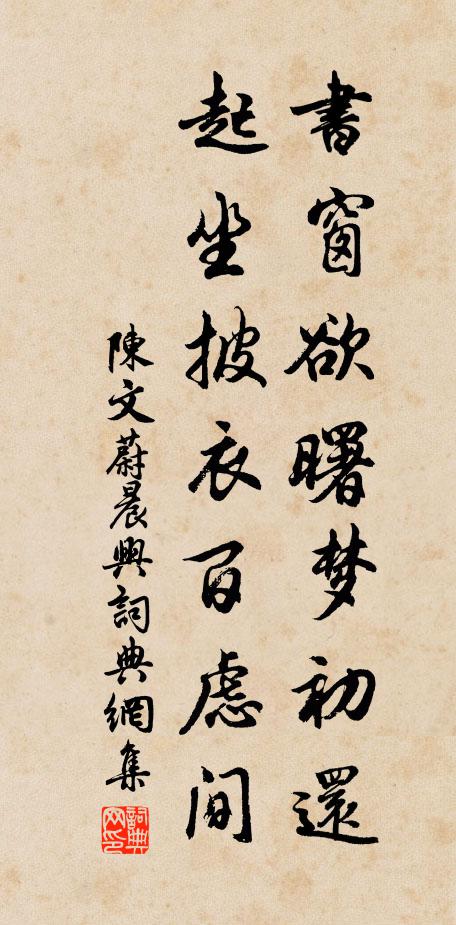 書窗欲曙梦初還
起坐披衣百慮间
陳文蔚晨興詞典網集
詞典网印